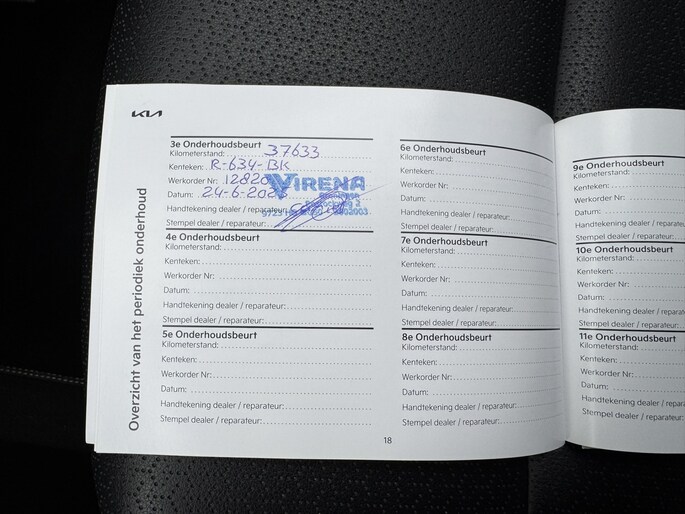 KIA
Overzicht van het periodiek onderhoud
3e Onderhoudsbeurt
Kilometerstand: 37633
Kenteken: R-634-BK
Werkorder Nr: 12820
Datum: 24-6-202
Handtekening dealer / reparateur:
Stempel dealer / reparateur:
VIRENA
4e Onderhoudsbeurt
Kilometerstand:
Kenteken:
Werkorder Nr:
Datum:
Handtekening dealer / reparateur:
Stempel dealer / reparateur:
5e Onderhoudsbeurt
Kilometerstand:
Kenteken:
Werkorder Nr:
Datum:
Handtekening dealer / reparateur:
Stempel dealer / reparateur:
6e Onderhoudsbeurt
Kilometerstand:
Kenteken:
Werkorder Nr:
Datum:
Handtekening dealer / reparateur:
Stempel dealer / reparateur:
7e Onderhoudsbeurt
Kilometerstand:
Kenteken:
Werkorder Nr:
Datum:
Handtekening dealer / reparateur:
Stempel dealer / reparateur:
8e Onderhoudsbeurt
Kilometerstand:
Kenteken:
Werkorder Nr:
Datum:
Handtekening dealer / reparateur:
Stempel dealer / reparateur:
18
9e Onderhoudsbeurt
Kilometerstand:
Kenteken:
Werkorder Nr:
Datum:
Handtekening dealer
Stempel dealer / repar
10e Onderhoudsbeurt
Kilometerstand:
Kenteken:
Werkorder Nr:
Datum:
Handtekening dealer / re
Stempel dealer / reparate
11e Onderhoudsbeurt
Kilometerstand:
Kenteken:
Werkorder Nr:
Datum:
Handtekening dealer / rep
Stempel dealer / reparateu